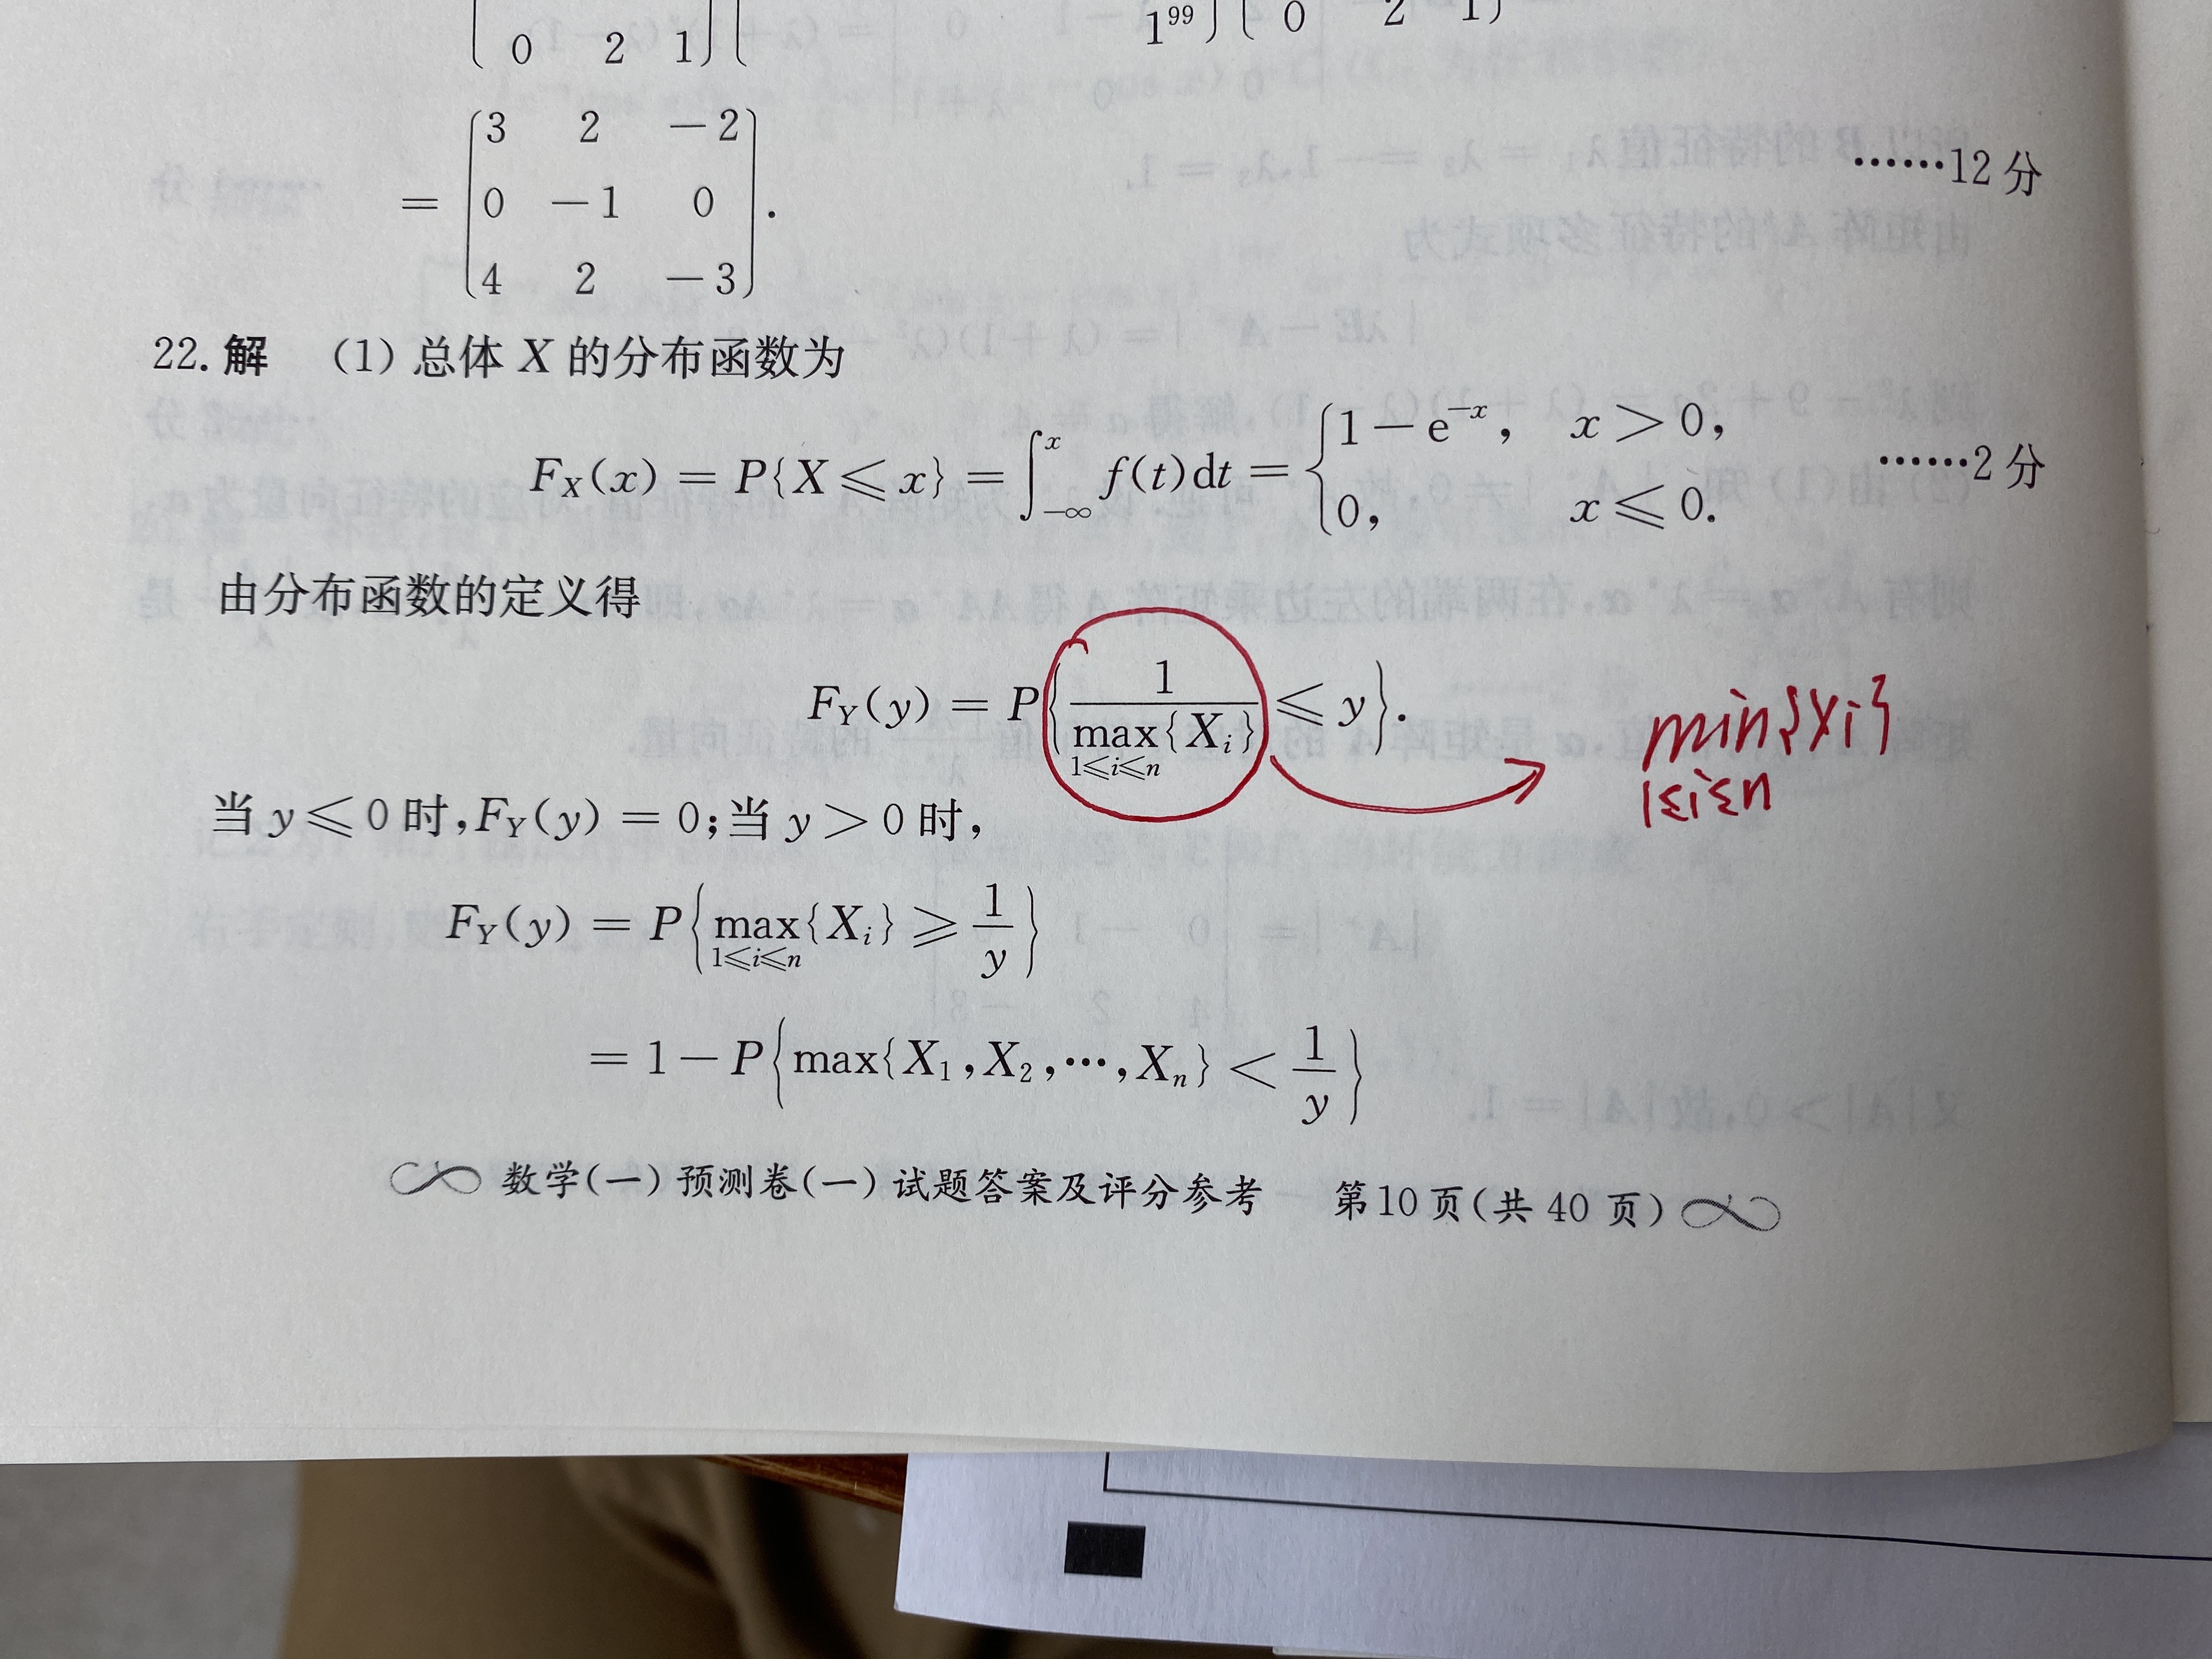 0 2 1 1⁹⁹ 0 2 1
= [3 2 −2
0 −1 0
4 2 −3]. ……12 分
22. 解 (1) 总体 X 的分布函数为
F_X(x) = P{X ≤ x} = ∫_{−∞}^{x} f(t)dt = {1 − e^{−x}, x > 0,
0, x ≤ 0. ……2 分
由分布函数的定义得
F_Y(y) = P{1/max_{1≤i≤n}{X_i} ≤ y}. min{Xi}
1≤i≤n
当 y ≤ 0 时, F_Y(y) = 0; 当 y > 0 时,
F_Y(y) = P{max_{1≤i≤n}{X_i} ≥ 1/y}
= 1 − P{max{X₁, X₂, ⋯, X_n} < 1/y}
数学(一)预测卷(一)试题答案及评分参考 第10页(共 40 页)